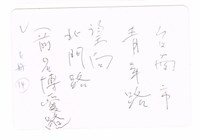 台南市
青年路
望向
北門路
(前名博愛路)